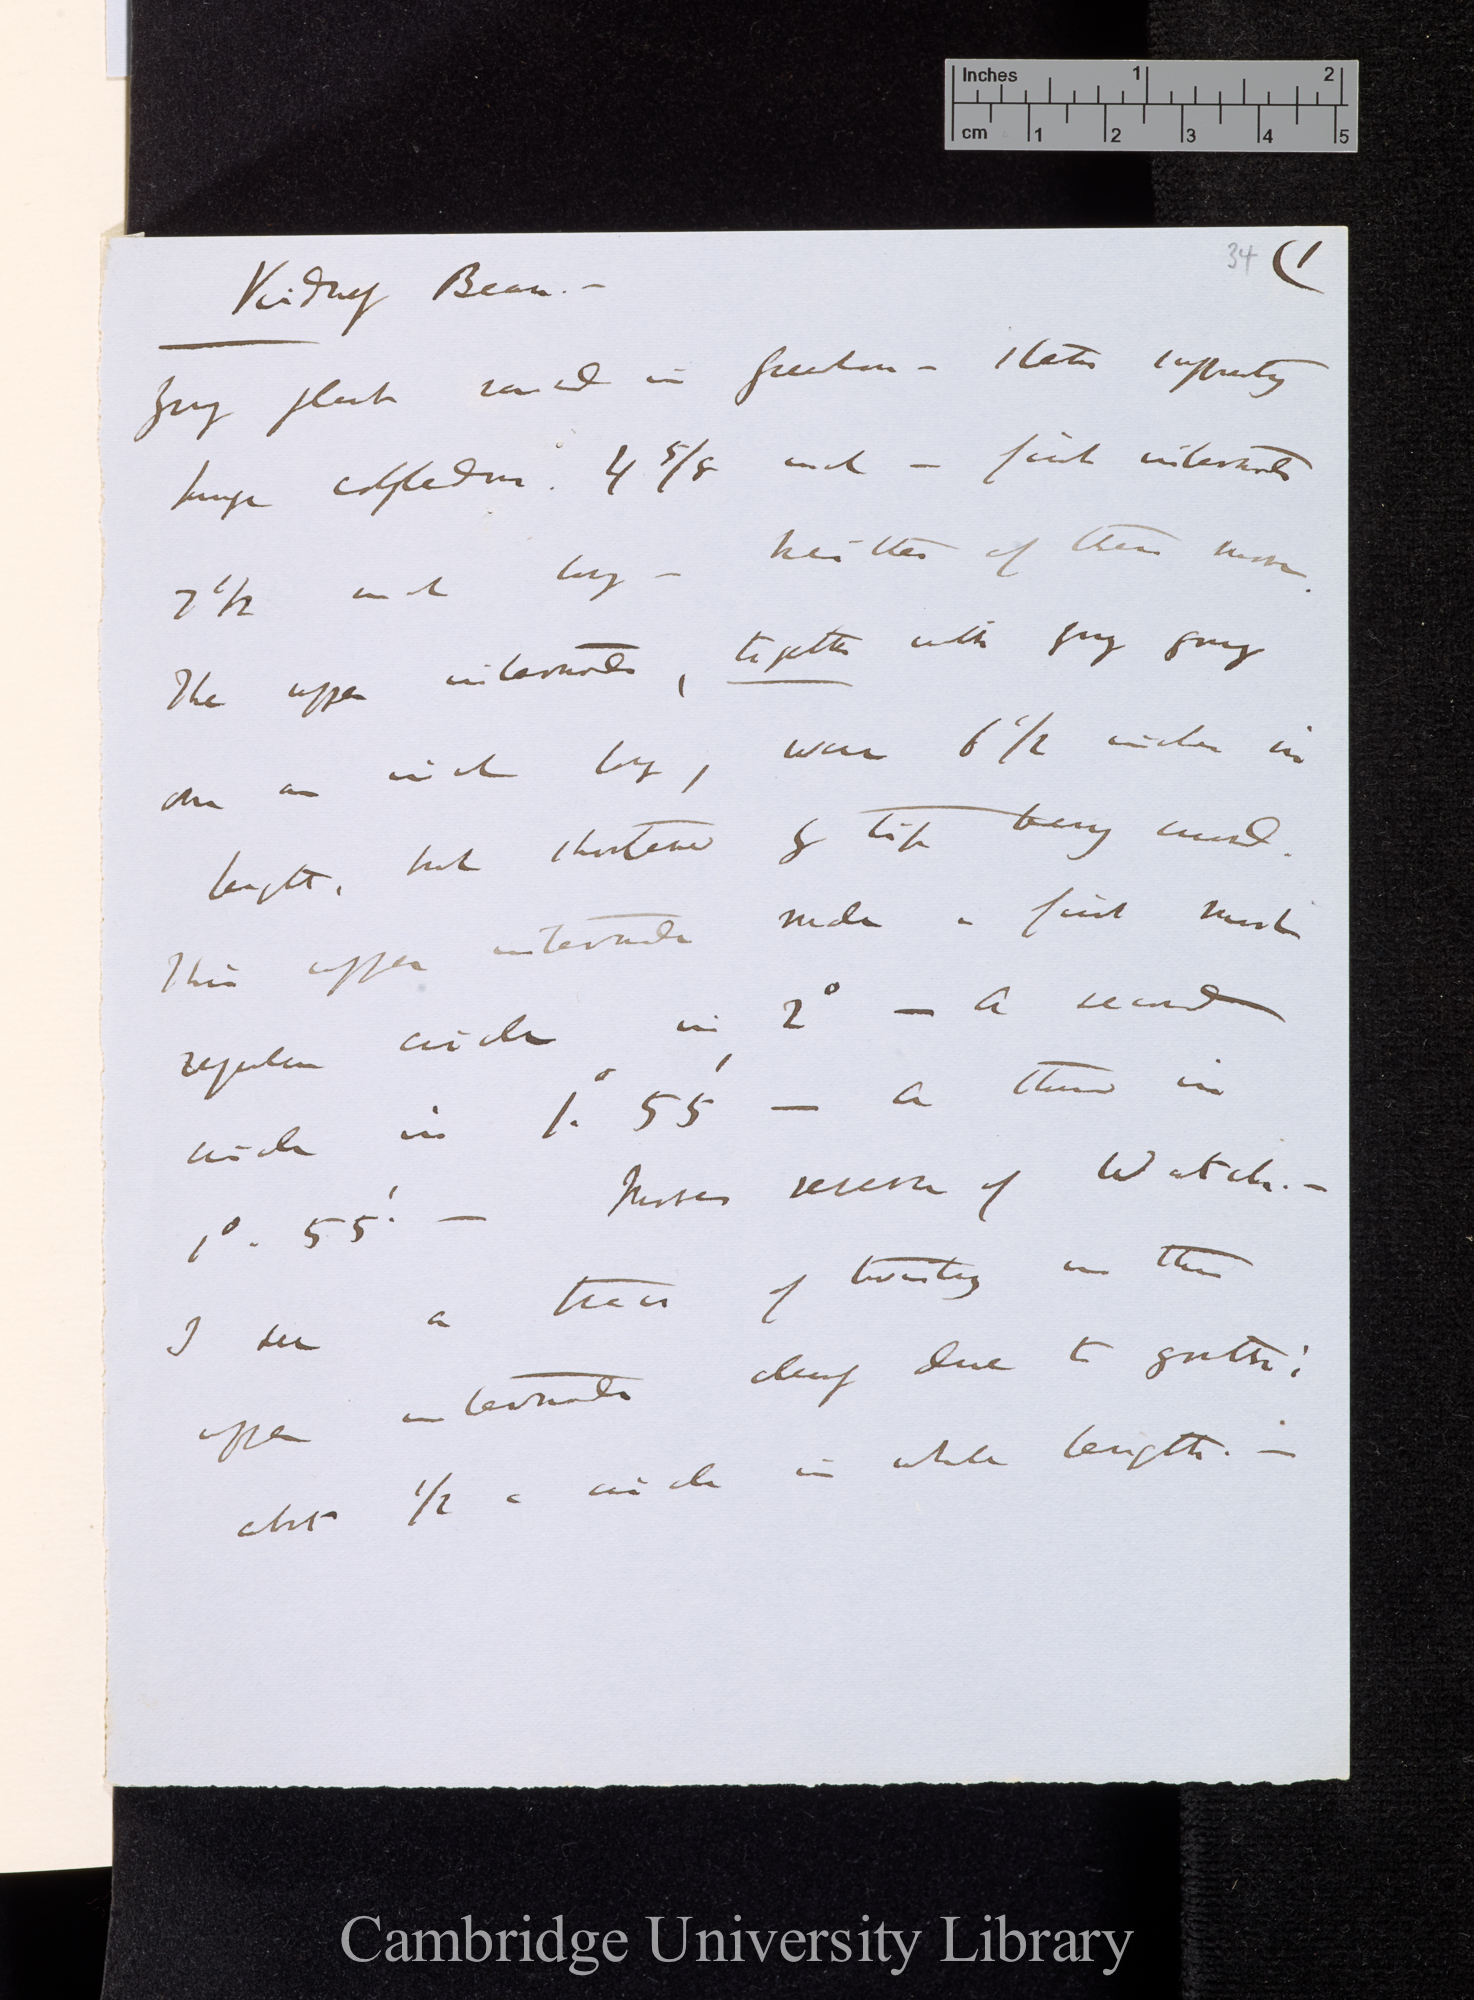 Inches 1 2
cm 1 2 3 4 5
34 (1
Kidney Bean. —
Young plant raised in greenhouse — stem supporting
huge cotyledons. 4 5/8 inch — first internode
7 1/2 inch long — neither of these move.
The upper internode, together with young young
one an inch long, were 6 1/2 inches in
length, but shortened by tip being curved.
This upper internode made a first most
regular circle in 2° — A second
circle in 1°. 55' — a third in
1°. 55'. — Moves reverse of Watch. —
I see a trace of twisting in this
upper internode clearly due to growth;
about 1/2 a circle in whole length. —
Cambridge University Library